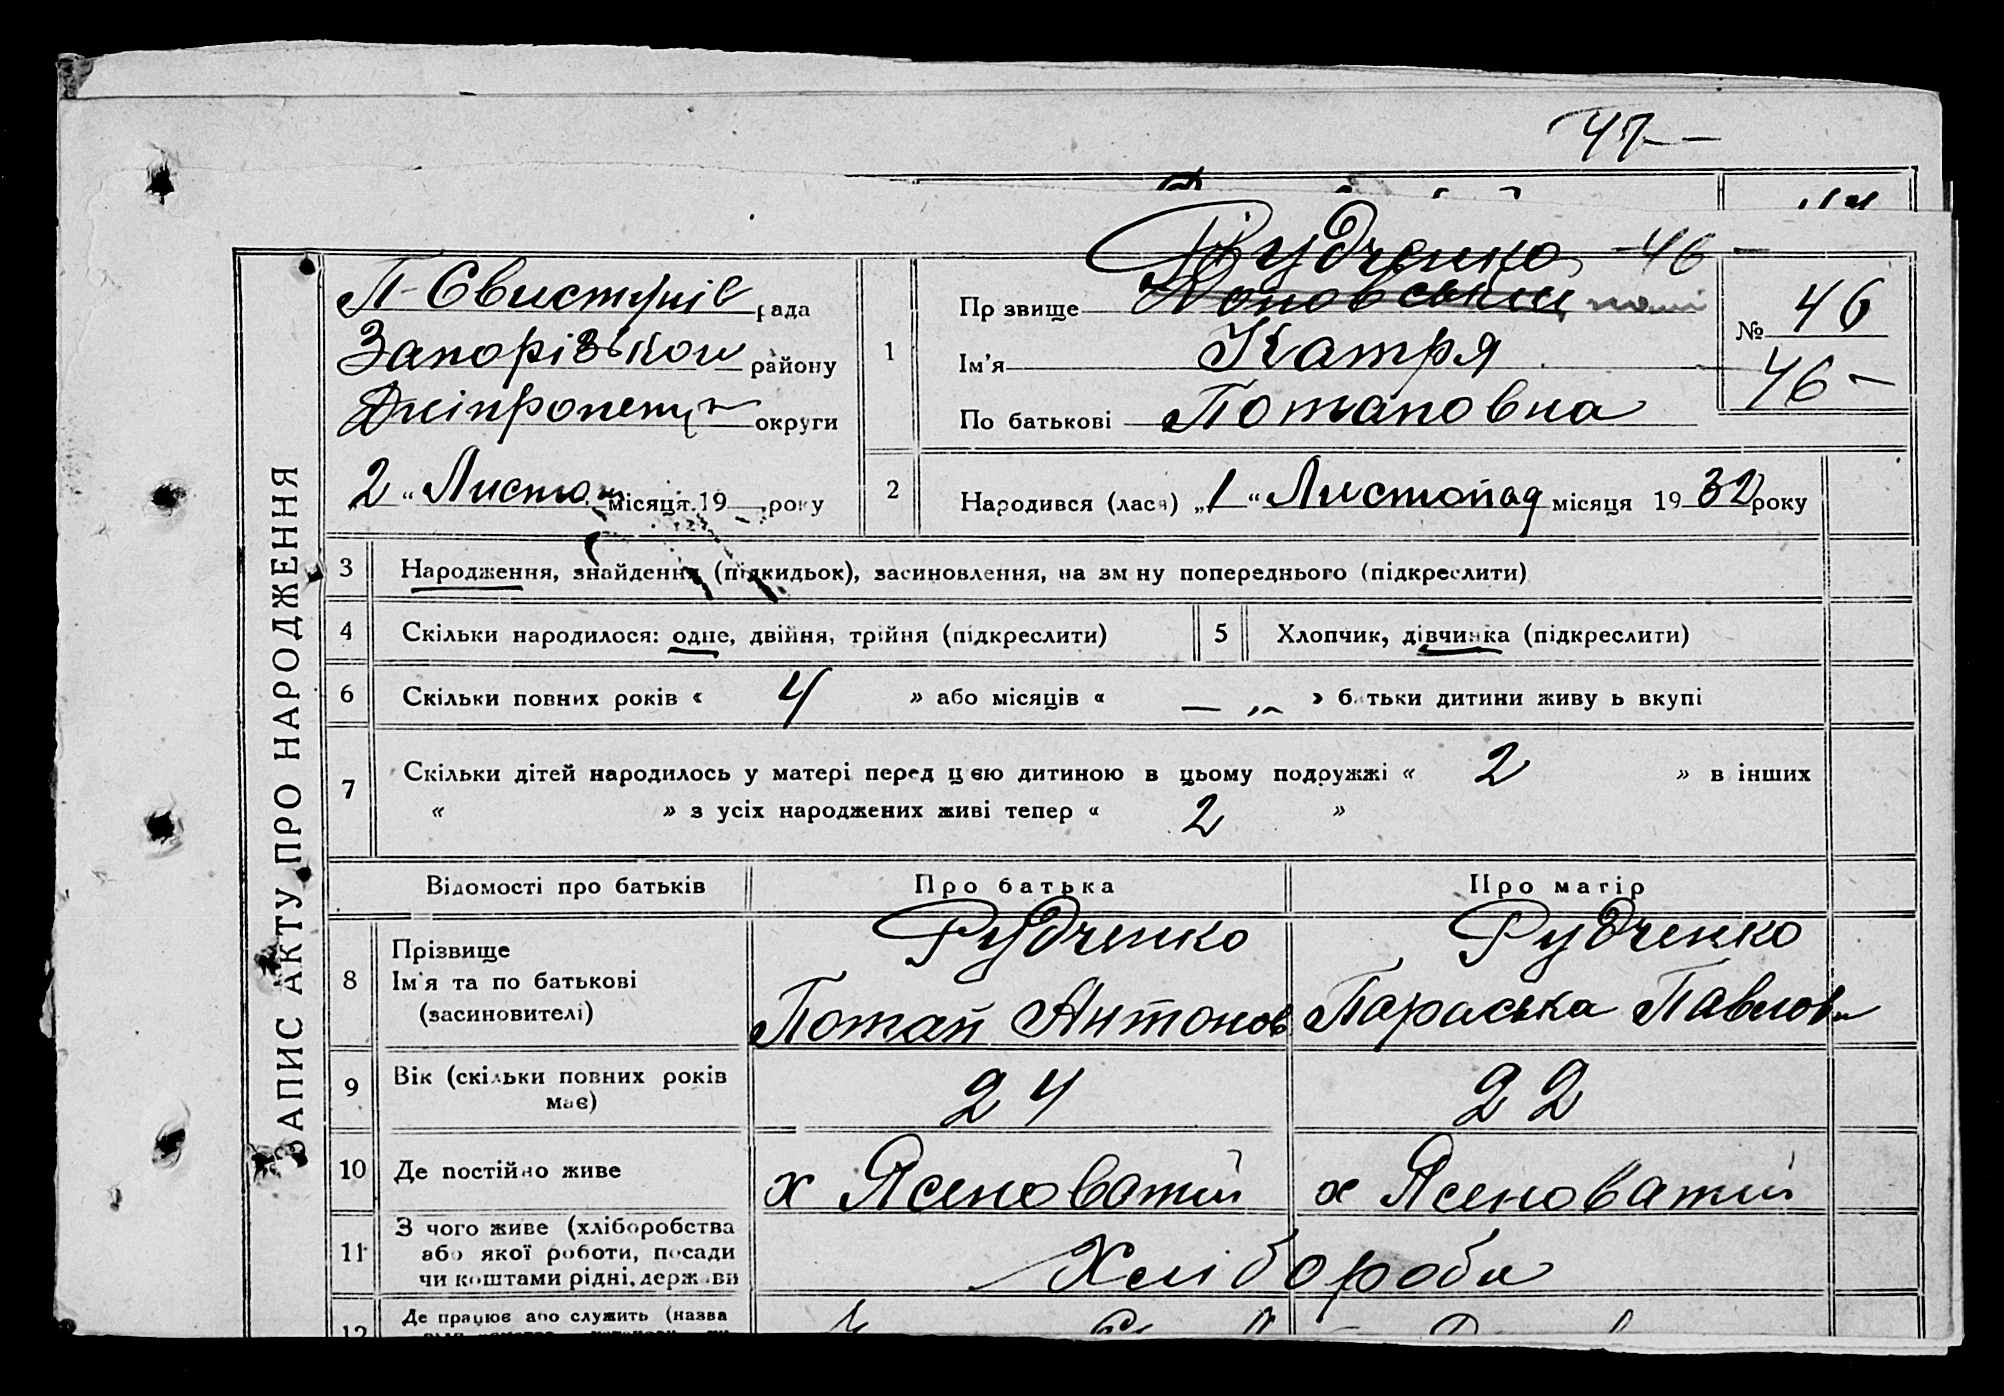 47-
Рудченко -46-
П-Свистунів рада
Запорізького району
Дніпропетр округи
2 " Листоп місяця 19 року
1
Пр звище
Ім'я Катря
По батькові Потаповна
№ 46
46-
2
Народився (лася) „1 " Листопад місяця 1932 року
ЗАПИС АКТУ ПРО НАРОДЖЕННЯ
3 Народження, знайдення (підкидьок), засиновлення, на зм ну попереднього (підкреслити)
4 Скільки народилося: одне, двійня, трійня (підкреслити)
5 Хлопчик, дівчинка (підкреслити)
6 Скільки повних років « 4 » або місяців « — „ » батьки дитини живу ь вкупі
7 Скільки дітей народилось у матері перед цією дитиною в цьому подружжі « 2 » в інших
« » з усіх народжених живі тепер « 2 »
Відомості про батьків
Про батька
Про матір
8 Прізвище
Ім'я та по батькові
(засиновителі)
Рудченко
Потап Антонов
Рудченко
Параська Павлов
9 Вік (скільки повних років
має)
24
22
10 Де постійно живе
х Ясеноватий
х Ясеноватий
11 З чого живе (хліборобства
або якої роботи, посади
чи коштами рідні, держави
Хлібороби
12 Де працює або служить (назва